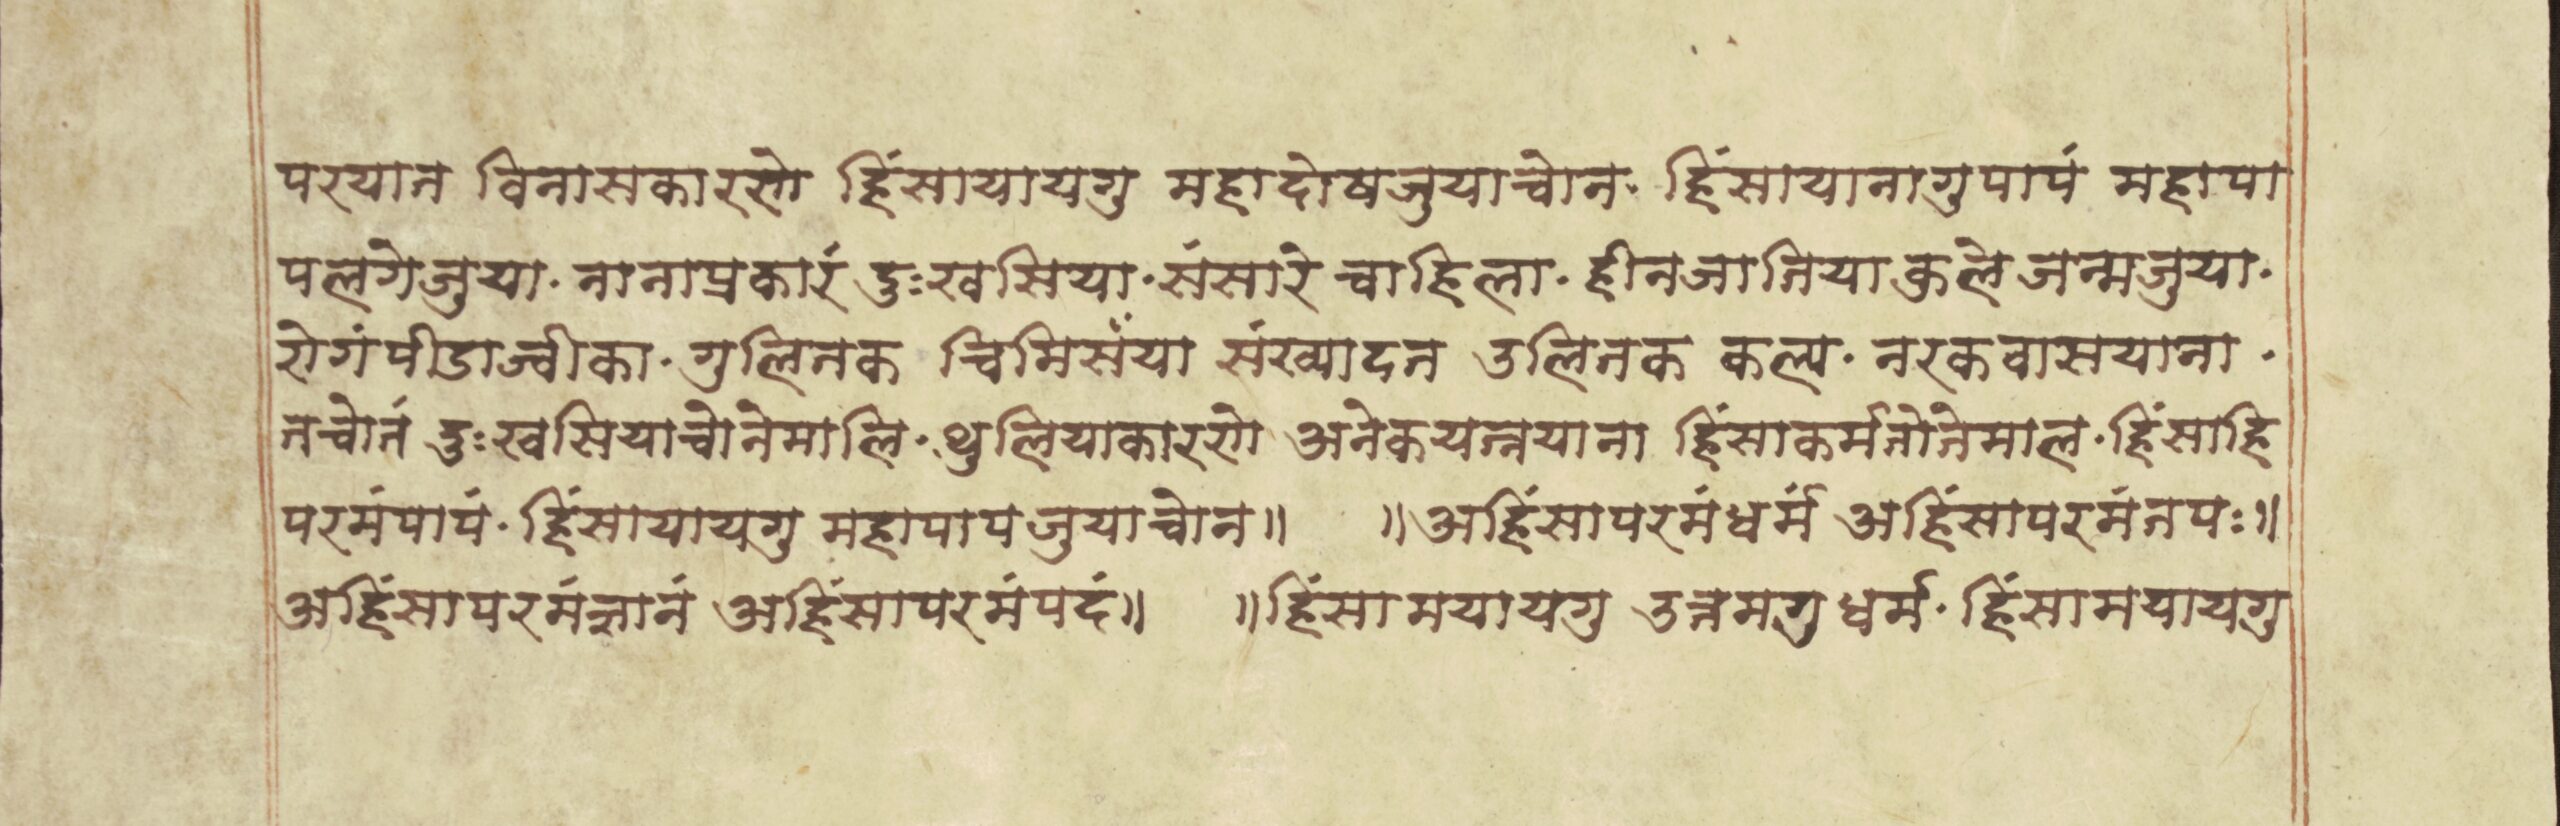 परयात विनासकारणे हिंसायायगु महादोषजुयाच्वोन· हिंसायानागुपापं महापा
पलगेजुया· नानाप्रकारं दुःखसिया· संसारे चाहिला· हीनजातियाकुले जन्मजुया·
रोगंपीडाज्वीका· गुलितक चिमिसँया संख्यादत उलितक कल्प· नरकवासयाना·
तच्वोतं दुःखसियाच्वोनेमालि· थुलियाकारणे अनेकयत्नयाना हिंसाकर्मतोतेमाल· हिंसाहि
परमंपापं· हिंसायायगु महापापजुयाच्वोन॥ ॥अहिंसापरमंधर्मं अहिंसापरमंतपः॥
अहिंसापरमंज्ञानं अहिंसापरमंपदं॥ ॥हिंसामयायगु उत्तमगुधर्म· हिंसामयायगु